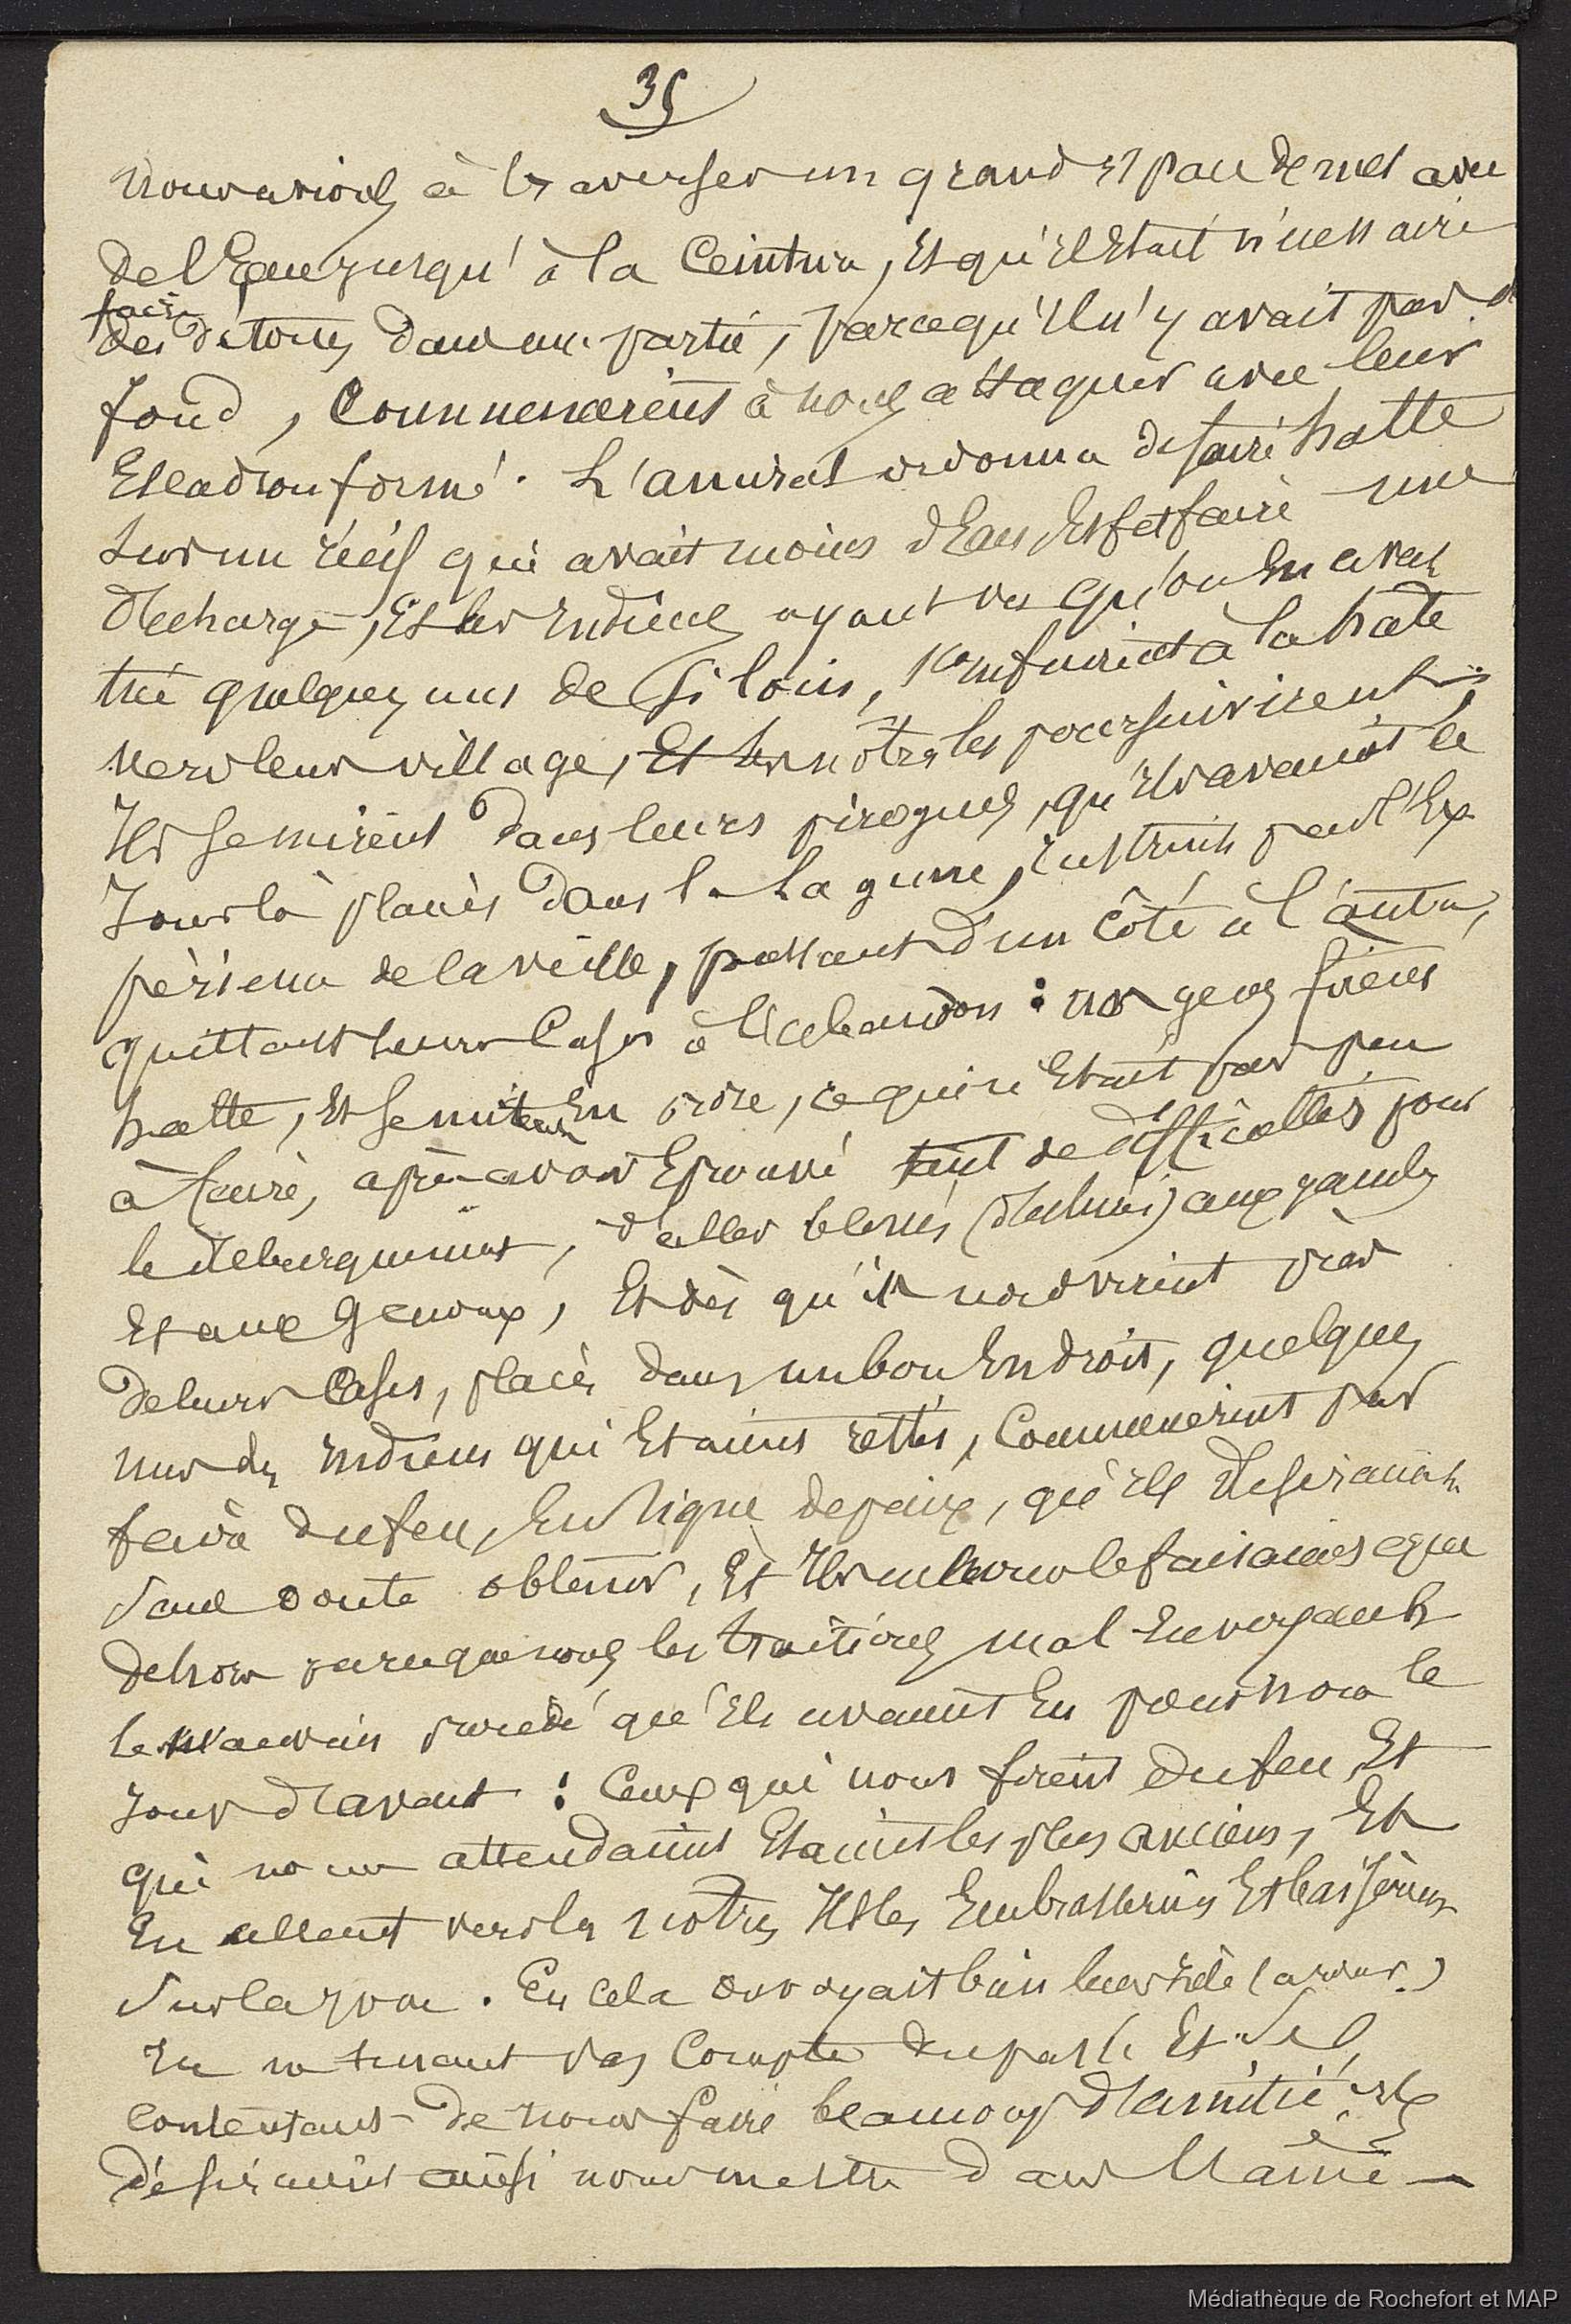 35
nous avions à traverser un grand espace de mer avec
de l'Eau jusqu'à la Ceinture, Et qu'il Etait nécessaire
faire
des détours dans une partie, parcequ'il n'y avait pas de
fond, Commencèrent à nous attaquer avec leur
Escadron formé. L'amiral ordonna de faire halte
sur un récif qui avait moins d'Eau Et fet faire une
décharge, Et les Indiens ayant vu qu'on En avait
tué quelques uns de si loin, s'enfuirent à la hate
vers leur village, Et les nôtres les poursuivirent,
Ils se mirent dans leurs pirogues, qu'ils avaient ce
Jour là placés dans la Lagune, instruits par l'Ex
périence de la veille, passant d'un côté à l'autre,
quittant leurs Cases à l'abandon : nos gens firent
halte, Et se mirent En ordre, ce qui n'Etait pas peu
à faire, après avoir Eprouvé tant de difficultés pour
le débarquement, d'aller blessés (déchirés) aux jambes
Et aux Genoux, Et dès qu'ils nous virent près
de leurs Cases, placés dans un bon Endroit, quelques
uns des Indiens qui Etaient restés, Commencèrent par
faire du feu, En signe de paix, qu'ils désiraient
sans doute obtenir, Et Ils le faisaient
dehors parceque nous les traitions mal Envoyant
le mauvais procédé qu'Ils avaient Eu pour nous le
jour d'avant : Ceux qui nous firent du feu, Et
qui nous attendaient Etaient les plus anciens, Et
En allant vers les notres Ils les Embrassèrent Et baisèrent
sur la joue. En cela on voyait bien leur zèle (amour.)
En ne tenant pas Compte du passé Et se
contentant de nous faire beaucoup d'amitié. Ils
désiraient aussi nous mettre dans l'âme —
Médiathèque de Rochefort et MAP